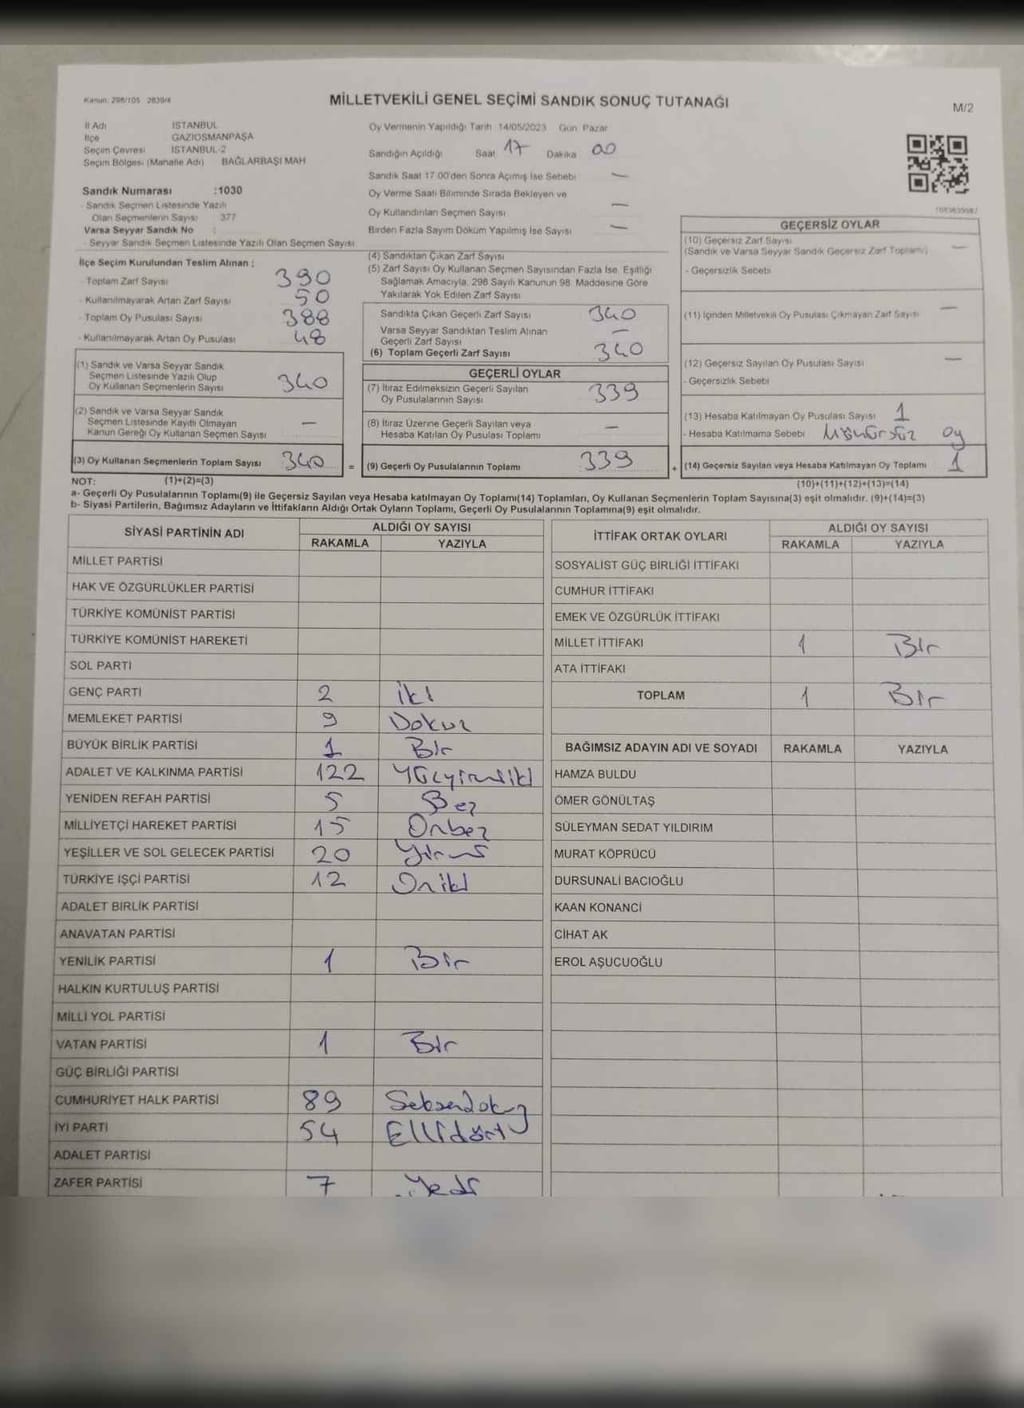 Kanun: 298/105 2839/4
MİLLETVEKİLİ GENEL SEÇİMİ SANDIK SONUÇ TUTANAĞI
M/2
İl Adı İSTANBUL
İlçe GAZİOSMANPAŞA
Seçim Çevresi İSTANBUL-2
Seçim Bölgesi (Mahalle Adı) BAĞLARBAŞI MAH
Sandık Numarası :1030
- Sandık Seçmen Listesinde Yazılı
Olan Seçmenlerin Sayısı 377
Varsa Seyyar Sandık No :
- Seyyar Sandık Seçmen Listesinde Yazılı Olan Seçmen Sayısı
Oy Vermenin Yapıldığı Tarih 14/05/2023 Gün Pazar
Sandığın Açıldığı Saat 17 Dakika 00
Sandık Saat 17:00'den Sonra Açılmış İse Sebebi —
Oy Verme Saati Bitiminde Sırada Bekleyen ve
Oy Kullandırılan Seçmen Sayısı —
Birden Fazla Sayım Döküm Yapılmış İse Sayısı —
İlçe Seçim Kurulundan Teslim Alınan ;
- Toplam Zarf Sayısı 390
- Kullanılmayarak Artan Zarf Sayısı 50
- Toplam Oy Pusulası Sayısı 388
- Kullanılmayarak Artan Oy Pusulası 48
(1) Sandık ve Varsa Seyyar Sandık
Seçmen Listesinde Yazılı Olup
Oy Kullanan Seçmenlerin Sayısı 340
(2) Sandık ve Varsa Seyyar Sandık
Seçmen Listesinde Kayıtlı Olmayan
Kanun Gereği Oy Kullanan Seçmen Sayısı —
(3) Oy Kullanan Seçmenlerin Toplam Sayısı 340
(4) Sandıktan Çıkan Zarf Sayısı
(5) Zarf Sayısı Oy Kullanan Seçmen Sayısından Fazla İse, Eşitliği
Sağlamak Amacıyla, 298 Sayılı Kanunun 98. Maddesine Göre
Yakılarak Yok Edilen Zarf Sayısı
Sandıkta Çıkan Geçerli Zarf Sayısı 340
Varsa Seyyar Sandıktan Teslim Alınan
Geçerli Zarf Sayısı —
(6) Toplam Geçerli Zarf Sayısı 340
GEÇERLİ OYLAR
(7) İtiraz Edilmeksizin Geçerli Sayılan
Oy Pusulalarının Sayısı 339
(8) İtiraz Üzerine Geçerli Sayılan veya
Hesaba Katılan Oy Pusulası Toplamı —
= (9) Geçerli Oy Pusulalarının Toplamı 339 +
GEÇERSİZ OYLAR
(10) Geçersiz Zarf Sayısı
(Sandık ve Varsa Seyyar Sandık Geçersiz Zarf Toplamı) —
- Geçersizlik Sebebi
(11) İçinden Milletvekili Oy Pusulası Çıkmayan Zarf Sayısı —
(12) Geçersiz Sayılan Oy Pusulası Sayısı —
- Geçersizlik Sebebi
(13) Hesaba Katılmayan Oy Pusulası Sayısı 1
- Hesaba Katılmama Sebebi Mühürsüz oy
(14) Geçersiz Sayılan veya Hesaba Katılmayan Oy Toplamı 1
NOT: (1)+(2)=(3)
(10)+(11)+(12)+(13)=(14)
a- Geçerli Oy Pusulalarının Toplamı(9) ile Geçersiz Sayılan veya Hesaba katılmayan Oy Toplamı(14) Toplamları, Oy Kullanan Seçmenlerin Toplam Sayısına(3) eşit olmalıdır. (9)+(14)=(3)
b- Siyasi Partilerin, Bağımsız Adayların ve İttifakların Aldığı Ortak Oyların Toplamı, Geçerli Oy Pusulalarının Toplamına(9) eşit olmalıdır.
SİYASİ PARTİNİN ADI ALDIĞI OY SAYISI
RAKAMLA YAZIYLA
MİLLET PARTİSİ
HAK VE ÖZGÜRLÜKLER PARTİSİ
TÜRKİYE KOMÜNİST PARTİSİ
TÜRKİYE KOMÜNİST HAREKETİ
SOL PARTİ
GENÇ PARTİ 2 İki
MEMLEKET PARTİSİ 9 Dokuz
BÜYÜK BİRLİK PARTİSİ 1 Bir
ADALET VE KALKINMA PARTİSİ 122 Yüzyirmiiki
YENİDEN REFAH PARTİSİ 5 Beş
MİLLİYETÇİ HAREKET PARTİSİ 15 Onbeş
YEŞİLLER VE SOL GELECEK PARTİSİ 20 Yirmi
TÜRKİYE İŞÇİ PARTİSİ 12 Oniki
ADALET BİRLİK PARTİSİ
ANAVATAN PARTİSİ
YENİLİK PARTİSİ 1 Bir
HALKIN KURTULUŞ PARTİSİ
MİLLİ YOL PARTİSİ
VATAN PARTİSİ 1 Bir
GÜÇ BİRLİĞİ PARTİSİ
CUMHURİYET HALK PARTİSİ 89 Seksendokuz
İYİ PARTİ 54 Ellidört
ADALET PARTİSİ
ZAFER PARTİSİ 7 Yedi
İTTİFAK ORTAK OYLARI ALDIĞI OY SAYISI
RAKAMLA YAZIYLA
SOSYALİST GÜÇ BİRLİĞİ İTTİFAKI
CUMHUR İTTİFAKI
EMEK VE ÖZGÜRLÜK İTTİFAKI
MİLLET İTTİFAKI 1 Bir
ATA İTTİFAKI
TOPLAM 1 Bir
BAĞIMSIZ ADAYIN ADI VE SOYADI RAKAMLA YAZIYLA
HAMZA BULDU
ÖMER GÖNÜLTAŞ
SÜLEYMAN SEDAT YILDIRIM
MURAT KÖPRÜCÜ
DURSUNALİ BACIOĞLU
KAAN KONANCİ
CİHAT AK
EROL AŞUCUOĞLU